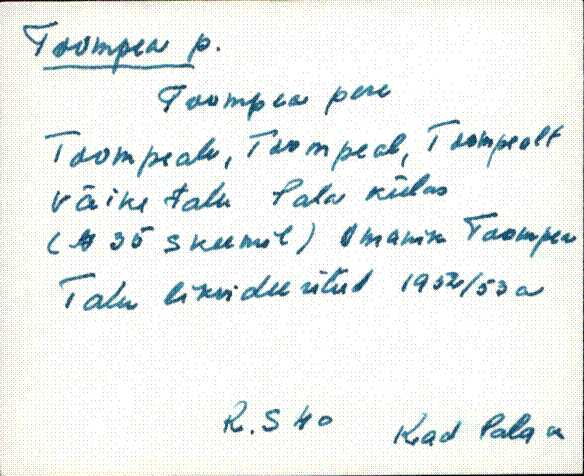 Toompea p.
Toompea pere
Toompeale, Toompeal, Toompealt
väike talu Pala külas
(№ 35 skeemil) Omanik Toompea
Talu likvideeritud 1952/53 a
R. S 40
Kad Pala k